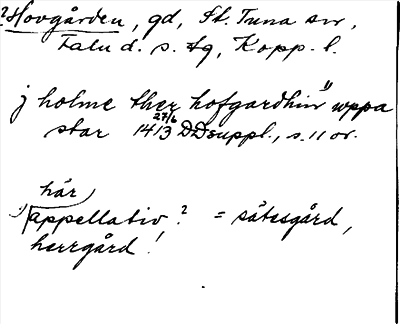 ?Hovgården, gd, St. Tuna sn,
Falu d. s. fg, Kopp. l.
j holme ther hofgardhin" uppa
star 1413 27/6 DDsuppl., s. 11 or.
här
appellativ? = sätesgård,
herrgård!